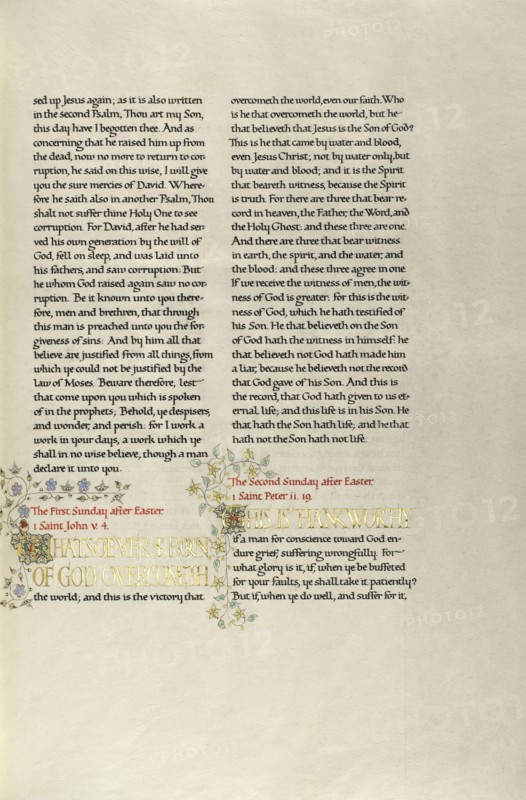 sed up Jesus again; as it is also written
in the second Psalm, Thou art my Son,
this day have I begotten thee. And as
concerning that he raised him up from
the dead, now no more to return to cor-
ruption, he said on this wise, I will give
you the sure mercies of David. Where-
fore he saith also in another Psalm, Thou
shalt not suffer thine Holy One to see
corruption. For David, after he had ser-
ved his own generation by the will of
God, fell on sleep, and was laid unto
his fathers, and saw corruption: But
he whom God raised again saw no cor-
ruption. Be it known unto you there-
fore, men and brethren, that through
this man is preached unto you the for-
giveness of sins: And by him all that
believe are justified from all things, from
which ye could not be justified by the
Law of Moses. Beware therefore, lest
that come upon you which is spoken
of in the prophets; Behold, ye despisers,
and wonder, and perish: for I work a
work in your days, a work which ye
shall in no wise believe, though a man
declare it unto you.
The First Sunday after Easter.
1 Saint John v. 4.
WHATSOEVER IS BORN
OF GOD OVERCOMETH
the world; and this is the victory that
overcometh the world, even our faith. Who
is he that overcometh the world, but he
that believeth that Jesus is the Son of God?
This is he that came by water and blood,
even Jesus Christ; not by water only, but
by water and blood; and it is the Spirit
that beareth witness, because the Spirit
is truth. For there are three that bear re-
cord in heaven, the Father, the Word, and
the Holy Ghost: and these three are one.
And there are three that bear witness
in earth, the spirit, and the water, and
the blood: and these three agree in one.
If we receive the witness of men, the wit-
ness of God is greater: for this is the wit-
ness of God, which he hath testified of
his Son. He that believeth on the Son
of God hath the witness in himself: he
that believeth not God hath made him
a liar, because he believeth not the record
that God gave of his Son. And this is
the record, that God hath given to us et-
ernal life; and this life is in his Son. He
that hath the Son hath life; and he that
hath not the Son hath not life.
The Second Sunday after Easter.
1 Saint Peter ii. 19.
THIS IS THANKWORTHY
if a man for conscience toward God en-
dure grief, suffering wrongfully. For
what glory is it, if, when ye be buffeted
for your faults, ye shall take it patiently?
But if, when ye do well, and suffer for it,
PHOTO12